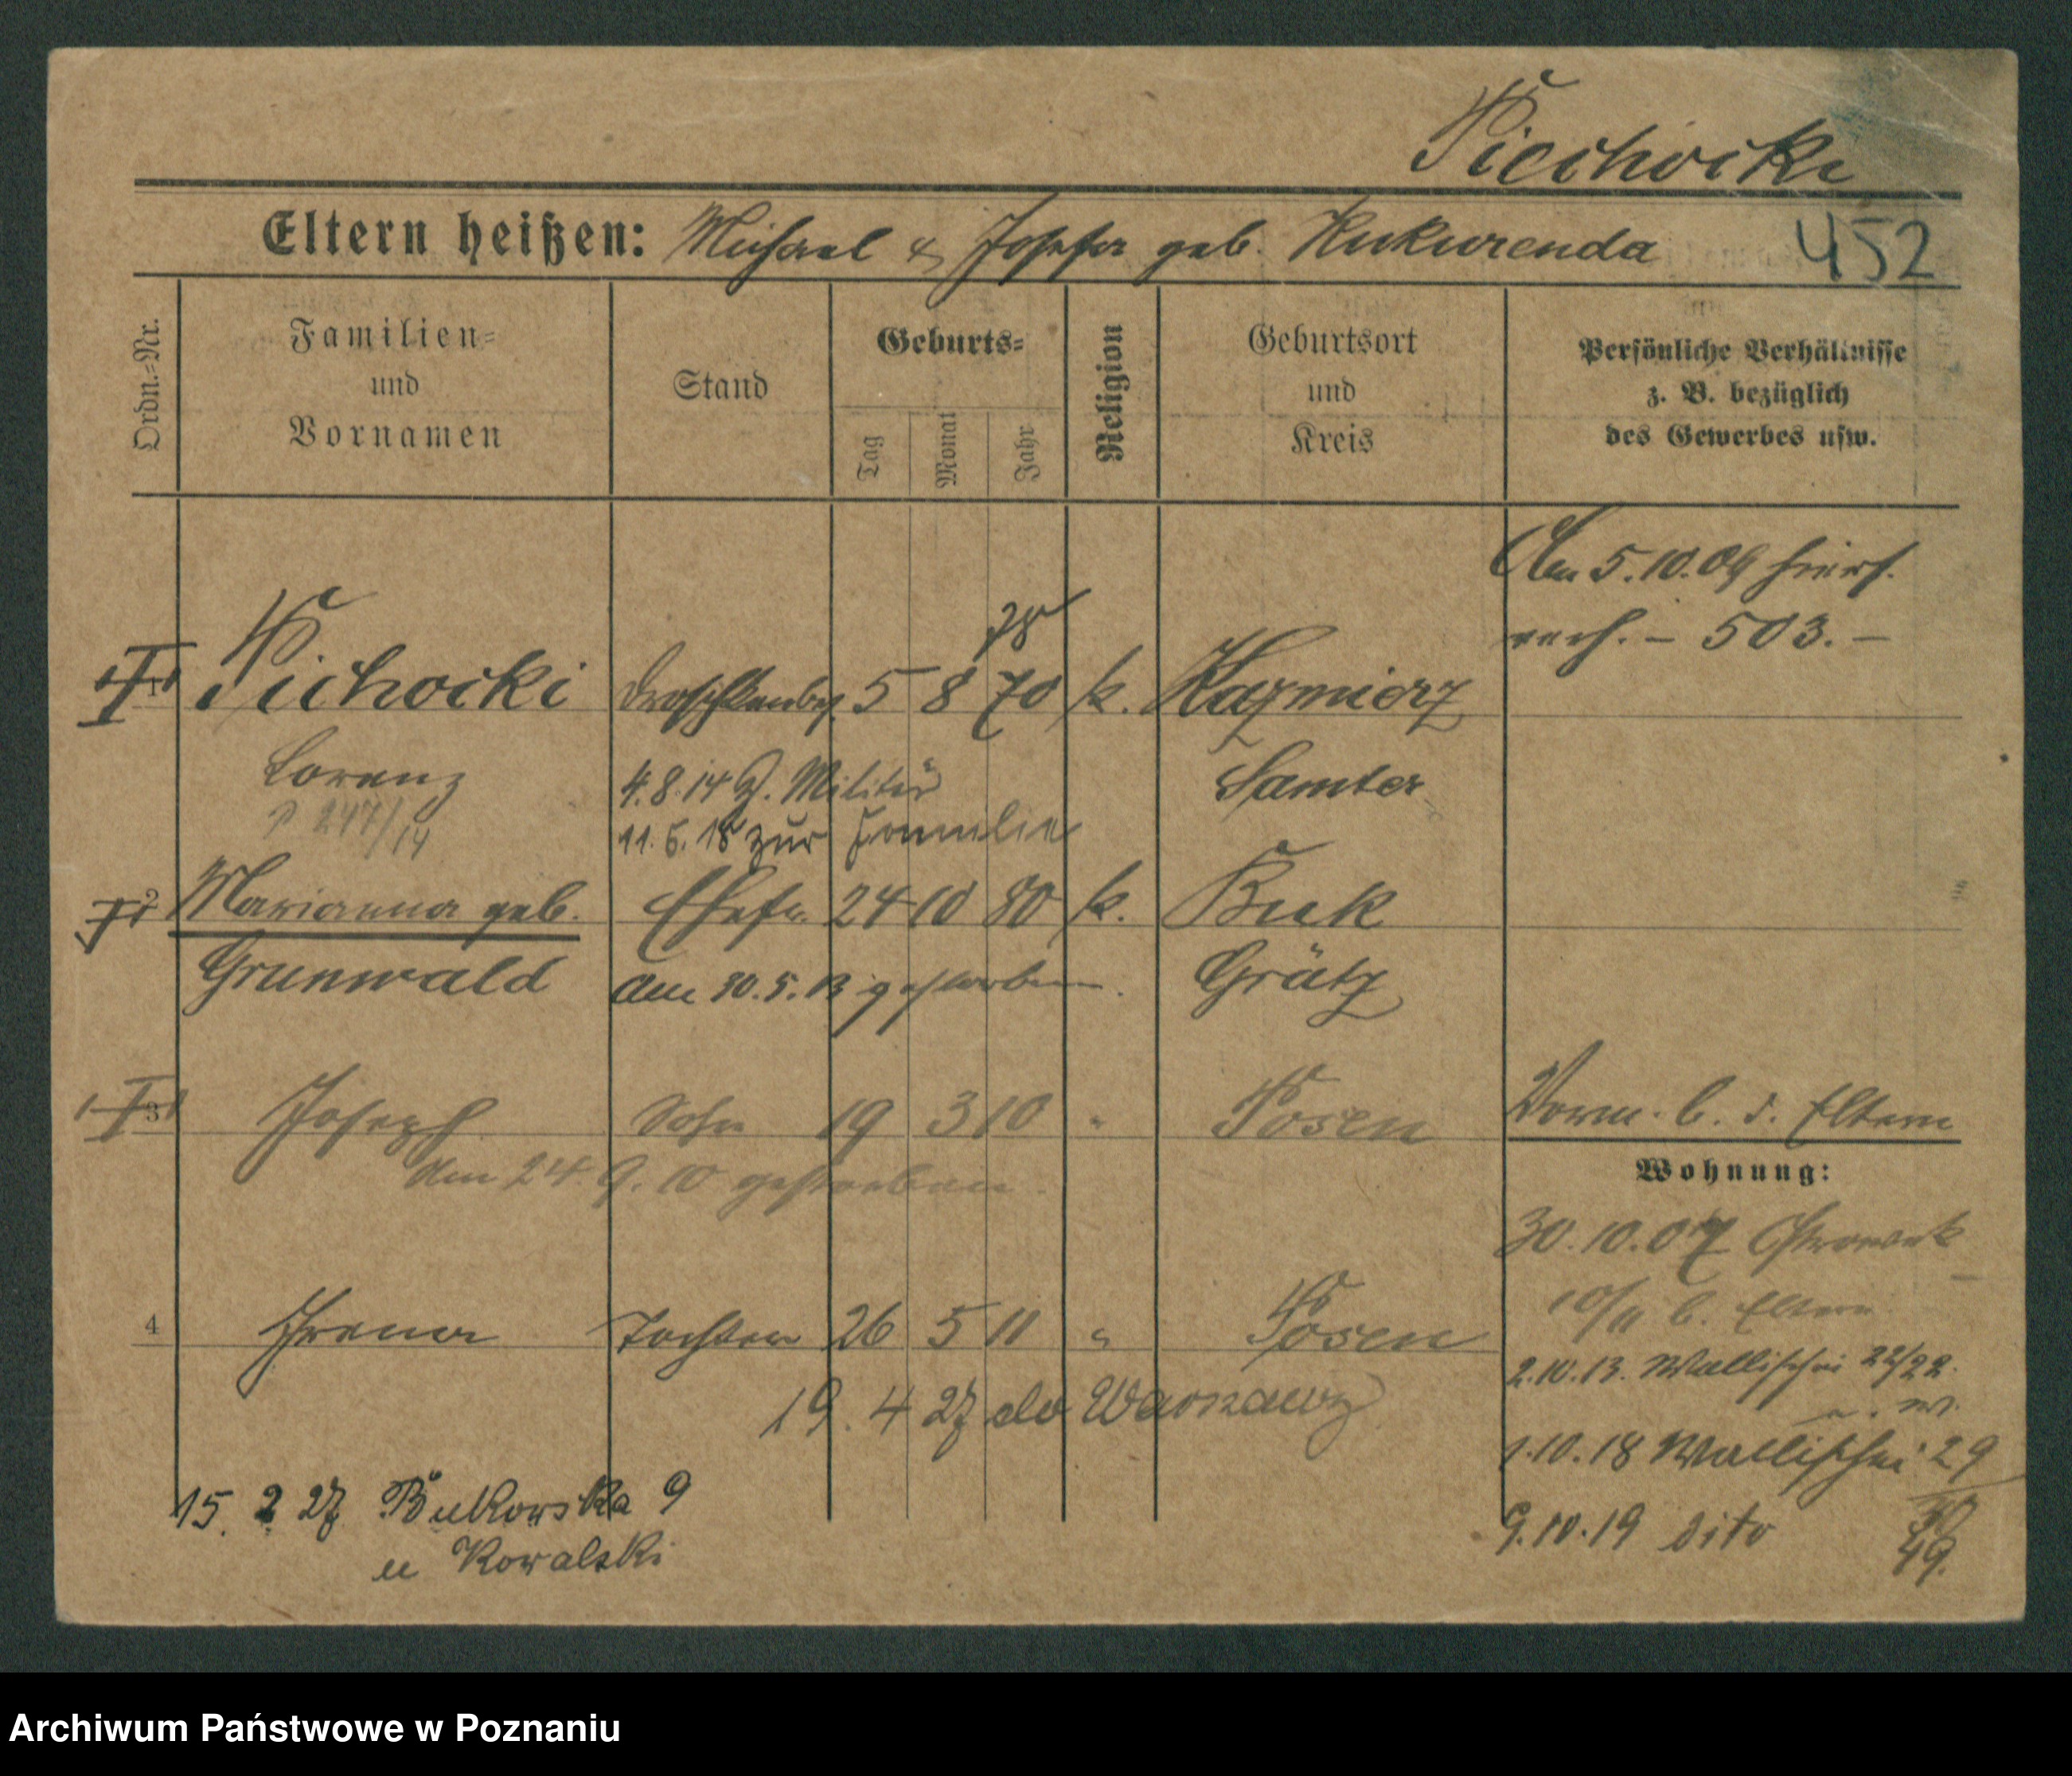 Piechocki
Eltern heißen: Michael & Josefa geb. Kukurenda 452
Ordn.-Nr.
Familien=
und
Vornamen
Stand
Geburts=
Tag
Monat
Jahr
Religion
Geburtsort
und
Kreis
Persönliche Verhältnisse
z. B. bezüglich
des Gewerbes usw.
Am 5.10.09 hiers.
verh. – 503. –
78
1 Piechocki Droschkenbes. 5 8 70 k. Kazmierz
Lorenz 4.8.14 z. Militär Samter
247/14 11.6.18 zur Familie
2 Marianna geb. Ehefr. 24 10 80 k. Buk
Grunwald Am 30.5.13 gestorben. Grätz
3 Joseph Sohn 19 3 10 " Posen
Am 24.9.10 gestorben.
Vorm. b. d. Eltern
Wohnung:
30.10.07
10/11 b. Eltern
4 Irena Tochter 26 5 11 " Posen
2.10.13. Wallischei 22/22.
19. 4 27 do Warszawy
1.10.18 Wallischei 29
15. 2 27 Bukowska 9
u Kowalski
9.10.19 dito
49.
Archiwum Państwowe w Poznaniu